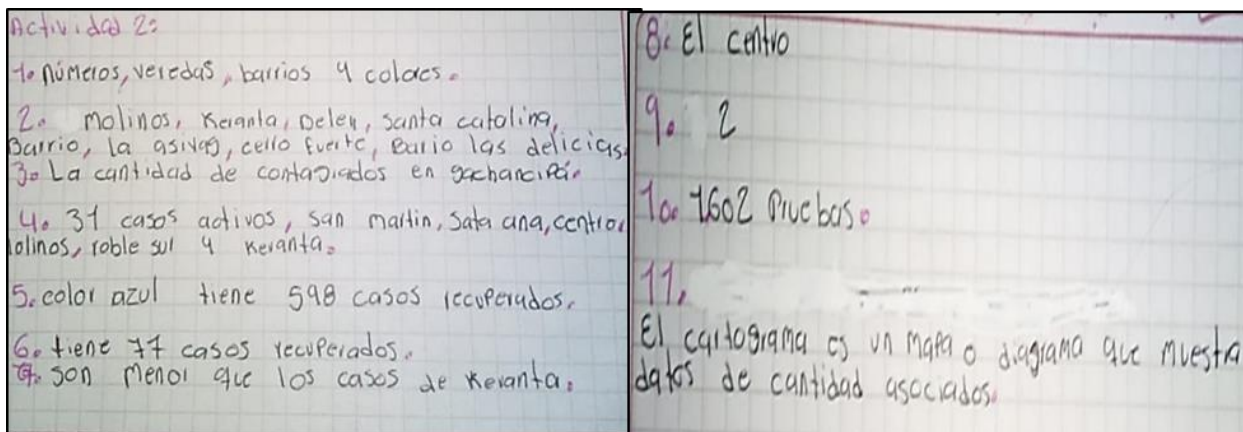 Actividad 2:
1. números, veredas, barrios y colores.
2. Molinos, Keranta, Belen, santa catalina,
Barrio, la asivag, cerro fuerte, Bario las delicias.
3. La cantidad de contagiados en gachancipá.
4. 31 casos activos, san martin, Sata ana, centro,
olinos, roble sur y keranta.
5. color azul tiene 598 casos recuperados.
6. tiene 77 casos recuperados.
7. son menor que los casos de keranta.
8. El centro
9. 2
10. 1602 Pruebas.
11.
El cartograma es un mapa o diagrama que muestra
datos de cantidad asociados.